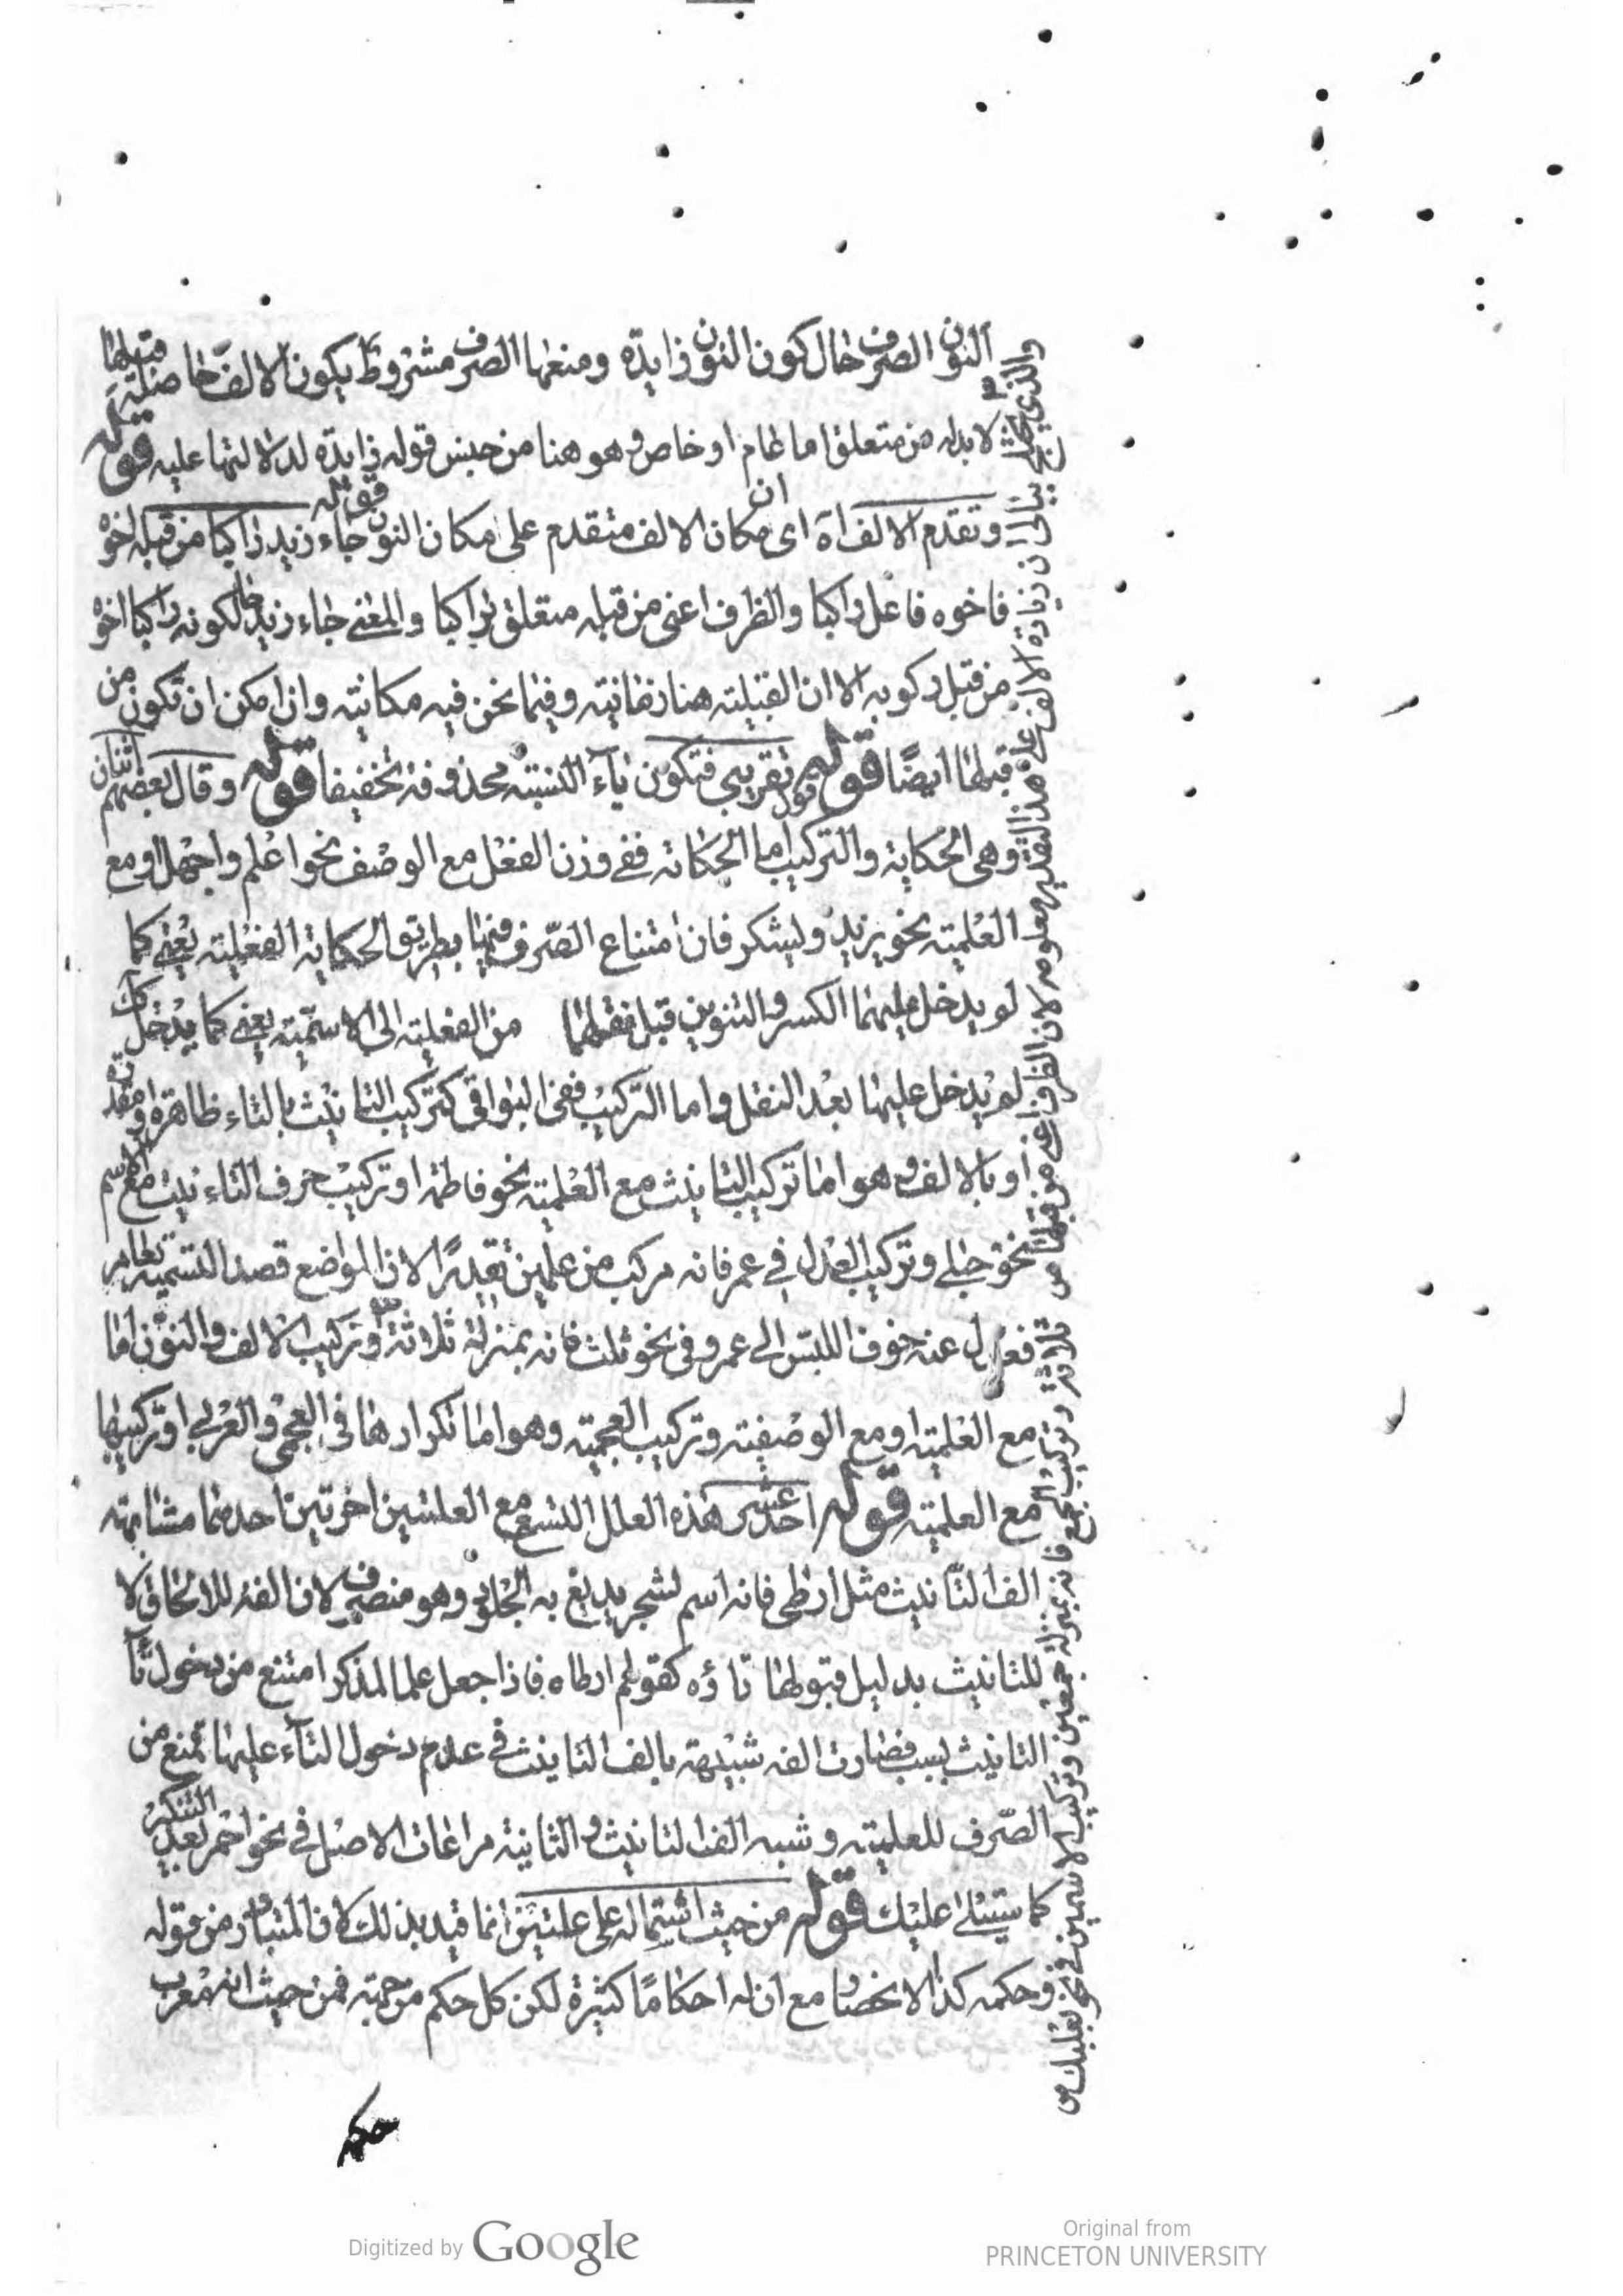 النون الصرف حال كون النون زايدة ومنعها الصرف مشروط بكون الالف حاصلة قبلها
لا بد له من متعلق اما عام او خاص وهو هنا من جنس قوله زايدة لدلالتها عليه قوله
وتقدم الالف اه اى ان مكان الالف متقدم على مكان النون قوله جاء زيد راكبا من قبله اخوه
فاخوه فاعل راكبا والظرف اعنى من قبله متعلق براكبا والمعنى جاء زيد حال كونه راكبا اخوه
من قبل ركوبه الا ان القبلية هنا زمانية وفيما نحن فيه مكانية وان امكن ان تكون من
قبلها ايضًا قوله قول تقريبى فتكون ياء النسبة محذوفة تخفيفا قوله وقال بعضهم اثنان
وهى الحكاية والتركيب اما الحكاية ففى وزن الفعل مع الوصف نحو اعلم واجهل او مع
العلمية نحو يزيد ويشكر فان امتناع الصرف فيها بطريق الحكاية الفعلية يعنى كما
لو يدخل عليهما الكسر والتنوين قبل نقلهما من الفعلية الى الاسمية يعنى كما يدخل
لم يدخل عليها بعد النقل واما التركيب ففى البواقى كتركيب التانيث بالتاء ظاهرة او مقدرة
او بالالف وهو اما تركيب التانيث مع العلمية نحو فاطمة او تركيب حرف التاءنيث مع اسم
نحو حبلى وتركيب العدل فى عمر فانه مركب من علمين تقديرًا لان الواضع قصد التسمية بعامر
فعدل عنه خوف اللبس الى عمر وفى نحو ثلث فانه بمنزلة ثلاثة وتركيب الالف والنون اما
مع العلمية او مع الوصفية وتركيب العجمية وهو اما تكرارها فى العجمى والعربى او تركيبها
مع العلمية قوله احد عشر هذه العلل التسع مع العلتين اخرتين احدهما مشابهته
الف التانيث مثل ارطى فانه اسم لشجر يدبغ به الجلود وهو منصرف لان الفه للالحاق لا
للتانيث بدليل قبولها تاؤه كقولهم ارطاه فاذا جعل علما لمذكر امتنع من دخول تاء
التانيث لسبب فصارت الفه شبيهة بالف التانيث فى عدم دخول التاء عليها تمنع من
الصرف للعلمية وشبه الف التانيث والثانية مراعات الاصل فى نحو احمر بعد التنكير
كما سيتلى عليك قوله من حيث اشتماله على علتين انما قيد بذلك لان المتبادر من قوله
وحكمه كذا الانحصار مع ان له احكامًا كثيرة لكن كل حكم من جهته فمن حيث انه معرب
ان زيادة الالف على هذا التقدير معلومة لان الظرف اعنى من قبلها ص
ثلاثة وتركيب الجمع فانه بمنزلة جمعين وتركيب الاسمين فى نحو بعلبك ص
حكمه
Digitized by Google
Original from
PRINCETON UNIVERSITY